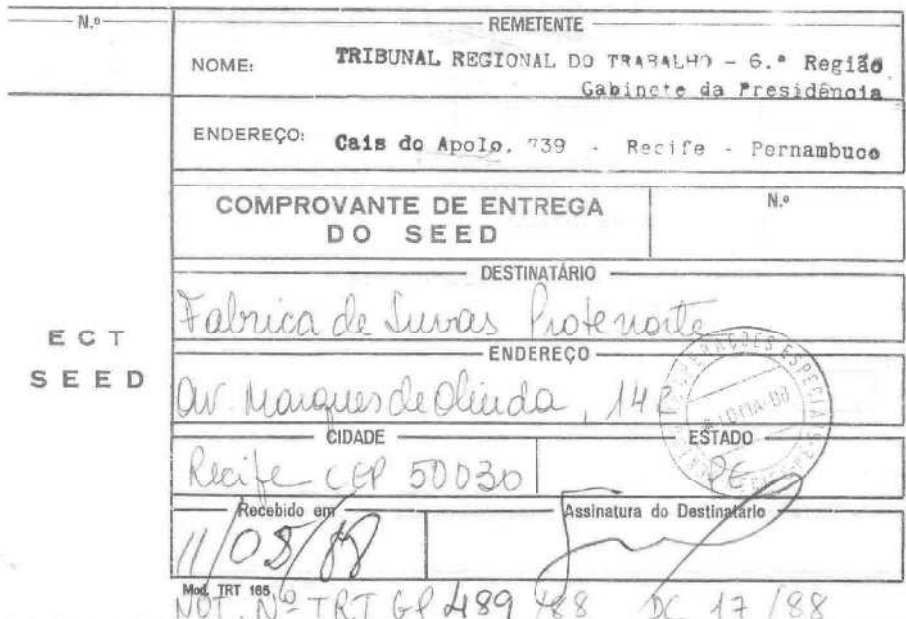 N.º
REMETENTE
NOME: TRIBUNAL REGIONAL DO TRABALHO - 6.ª Região
Gabinete da Presidência
ENDEREÇO: Cais do Apolo, 739 - Recife - Pernambuco
COMPROVANTE DE ENTREGA
DO SEED
N.º
ECT
SEED
DESTINATÁRIO
Fabrica de Luvas Protenorte
ENDEREÇO
Av. Marques de Olinda, 142
CIDADE
ESTADO
Recife CEP 50030
PE
Recebido em
Assinatura do Destinatário
11/05/88
Mod. TRT 165
NOT. Nº TRT GP 489/88 DC 17/88
ESPECIAIS